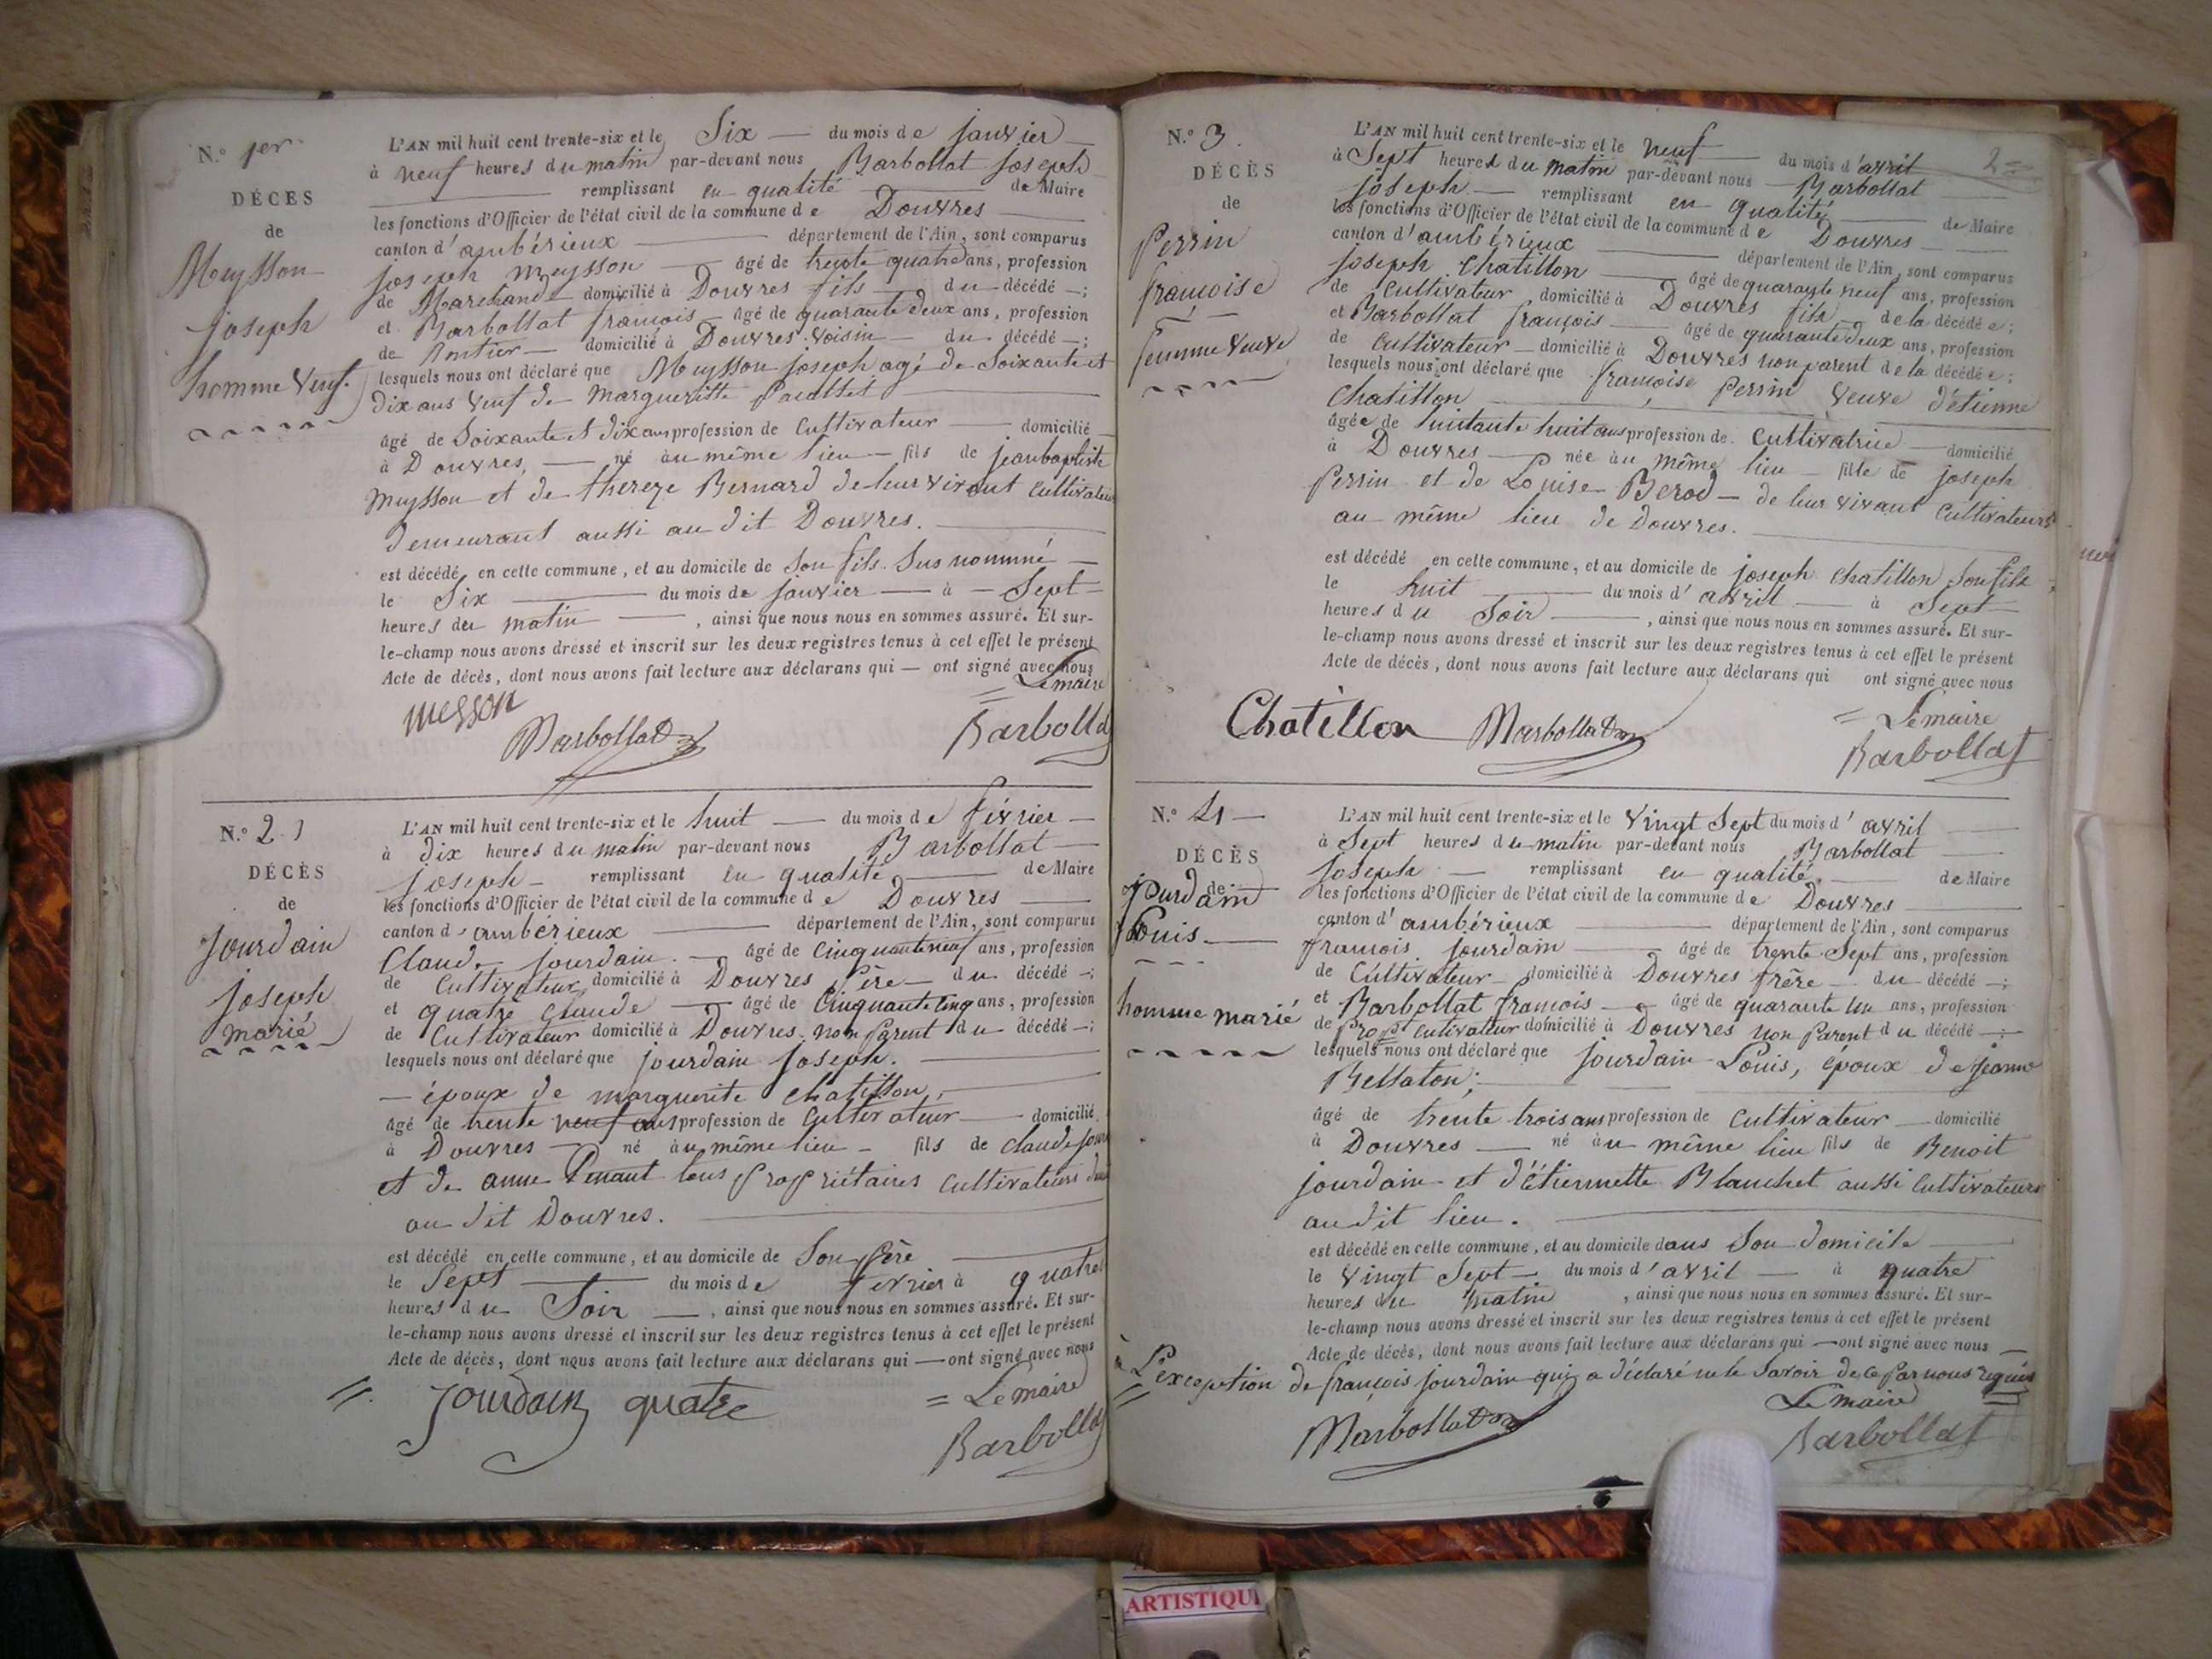 N.º 1er
DÉCES
de
Meysson
joseph
homme Veuf.
L'AN mil huit cent trente-six et le Six du mois de janvier
à neuf heures du matin par-devant nous Barbollat joseph
remplissant en qualité de Maire
les fonctions d'Officier de l'état civil de la commune de Douvres
canton d'ambérieux département de l'Ain, sont comparus
joseph Meysson âgé de trente quatre ans, profession
de Marchand domicilié à Douvres fils du décédé ;
et Barbollat françois âgé de quarante deux ans, profession
de Rentier domicilié à Douvres Voisin du décédé ;
lesquels nous ont déclaré que Meysson joseph agé de Soixante et
dix ans Veuf de Margueritte
âgé de Soixante et dix ans profession de Cultivateur domicilié
à Douvres, né au même lieu fils de jeanbaptiste
Meysson et de thereze Bernard de leur vivant Cultivateurs
demeurant aussi au dit Douvres.
est décédé en cette commune, et au domicile de Son fils Sus nommé
le Six du mois de janvier à Sept
heures du matin , ainsi que nous nous en sommes assuré. Et sur-
le-champ nous avons dressé et inscrit sur les deux registres tenus à cet effet le présent
Acte de décès, dont nous avons fait lecture aux déclarans qui — ont signé avec nous
= Le maire
messon Barbollat Barbollat
N.º 2
DÉCÈS
de
Jourdain
joseph
marié
L'AN mil huit cent trente-six et le huit du mois de février
à dix heures du matin par-devant nous Barbollat
joseph remplissant en qualité de Maire
les fonctions d'Officier de l'état civil de la commune de Douvres
canton d'ambérieux département de l'Ain, sont comparus
Claude jourdain âgé de Cinquante neuf ans, profession
de Cultivateur domicilié à Douvres Père du décédé ;
et quatre Claude âgé de Cinquante cinq ans, profession
de Cultivateur domicilié à Douvres non Parent du décédé ;
lesquels nous ont déclaré que jourdain joseph.
époux de marguerite Chatillon,
âgé de trente neuf ans profession de Cultivateur domicilié
à Douvres né au même lieu fils de Claude
et de anne Penant tous Propriétaires Cultivateurs
au dit Douvres.
est décédé en cette commune, et au domicile de Son Père
le Sept du mois de fevrier à quatre
heures du Soir , ainsi que nous nous en sommes assuré. Et sur-
le-champ nous avons dressé et inscrit sur les deux registres tenus à cet effet le présent
Acte de décès, dont nous avons fait lecture aux déclarans qui — ont signé avec nous
= Jourdain quatre = Le maire
Barbollat
N.º 3
DÉCÈS
de
Perrin
françoise
femme Veuve
2=
L'AN mil huit cent trente-six et le neuf du mois d'avril
à Sept heures du matin par-devant nous Barbollat
joseph remplissant en qualité de Maire
les fonctions d'Officier de l'état civil de la commune de Douvres
canton d'ambérieux département de l'Ain, sont comparus
joseph Chatillon âgé de quarante neuf ans, profession
de Cultivateur domicilié à Douvres fils de la décédée ;
et Barbollat françois âgé de quarante deux ans, profession
de Cultivateur domicilié à Douvres non parent de la décédée ;
lesquels nous ont déclaré que françoise Perrin Veuve d'étienne
Chatillon
âgée de huitante huit ans profession de Cultivatrice domicilié
à Douvres née au même lieu fille de joseph
Perrin et de Louise Berod de leur vivant Cultivateurs
au même lieu de Douvres.
est décédé en cette commune, et au domicile de joseph Chatillon Son fils
le huit du mois d'avril à Sept
heures du Soir , ainsi que nous nous en sommes assuré. Et sur-
le-champ nous avons dressé et inscrit sur les deux registres tenus à cet effet le présent
Acte de décès, dont nous avons fait lecture aux déclarans qui ont signé avec nous
Chatillon Barbollat = Le maire
Barbollat
N.º 4
DÉCÈS
de
jourdain
Louis
homme marié
L'AN mil huit cent trente-six et le Vingt Sept du mois d'avril
à Sept heures du matin par-devant nous Barbollat
joseph remplissant en qualité de Maire
les fonctions d'Officier de l'état civil de la commune de Douvres
canton d'ambérieux département de l'Ain, sont comparus
françois jourdain âgé de trente Sept ans, profession
de Cultivateur domicilié à Douvres frère du décédé ;
et Barbollat françois âgé de quarante un ans, profession
de Propt Cutivateur domicilié à Douvres non Parent du décédé ;
lesquels nous ont déclaré que jourdain Louis, époux de jeanne
Bellaton;
âgé de trente trois ans profession de Cultivateur domicilié
à Douvres né au même lieu fils de Benoit
jourdain et d'Étiennette Blanchet aussi Cultivateurs
au dit lieu.
est décédé en cette commune, et au domicile dans Son domicile
le Vingt Sept du mois d'avril à quatre
heures du matin , ainsi que nous nous en sommes assuré. Et sur-
le-champ nous avons dressé et inscrit sur les deux registres tenus à cet effet le présent
Acte de décès, dont nous avons fait lecture aux déclarans qui — ont signé avec nous
à L'exception de françois jourdain qui a déclaré ne le Savoir de ce par nous requis
Barbollat Le maire
Barbollat
ARTISTIQU